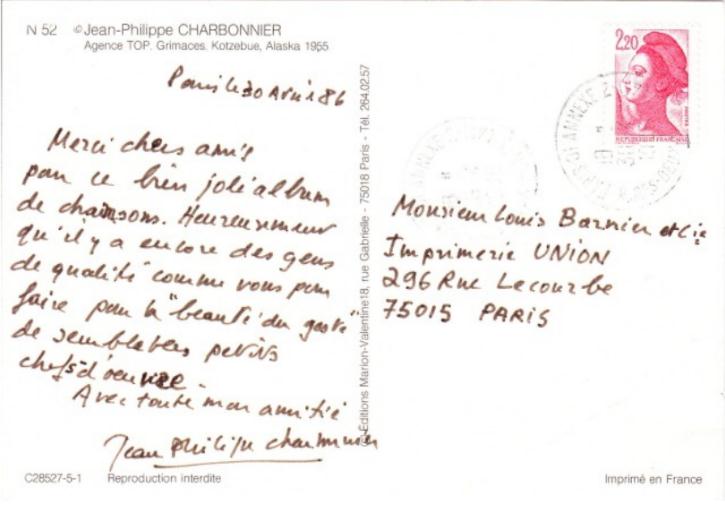 N 52 © Jean-Philippe CHARBONNIER
Agence TOP. Grimaces. Kotzebue, Alaska 1955
Paris le 30 Avril 86
Merci chers amis
pour ce bien joli album
de chansons. Heureusement
qu'il y a encore des gens
de qualité comme vous pour
faire pour la "beauté du geste"
de semblables petits
chefs d'oeuvre.
Avec toute mon amitié
Jean Philippe Charbonnier
C28527-5-1 Reproduction interdite
© Editions Marion-Valentine 18, rue Gabrielle - 75018 Paris - Tél. 264.02.57
2,20
REPUBLIQUE FRANÇAISE
Monsieur Louis Barnier et Cie
Imprimerie UNION
296 Rue Lecourbe
75015 PARIS
Imprimé en France